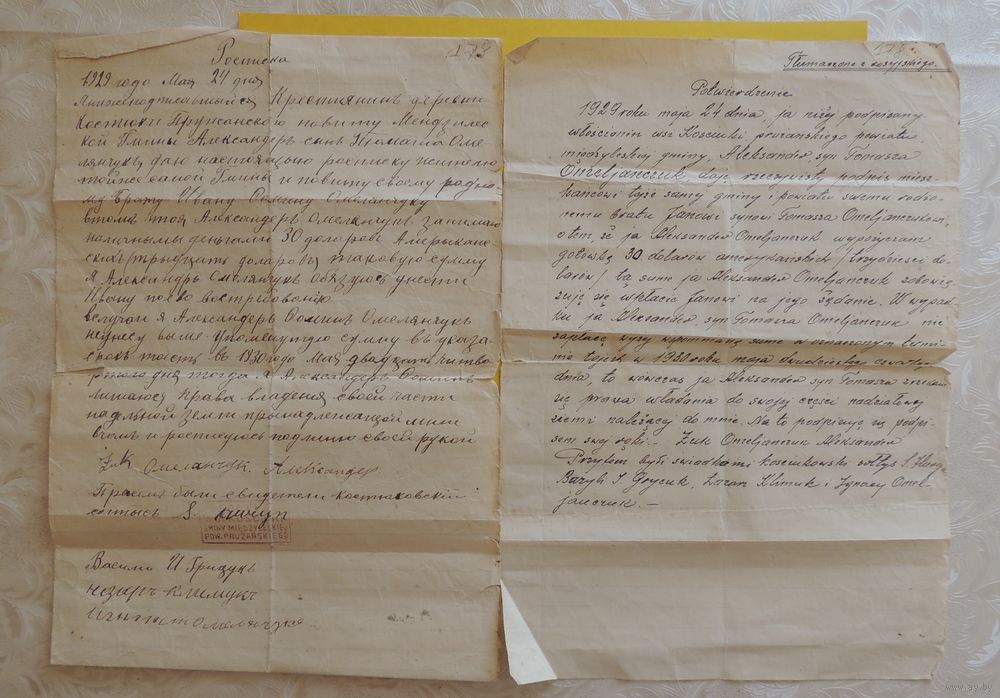 178
Росписка
1929 года Мая 24 дня
Крестиянинъ деревни
Костюки Пружанского повиту
кой Гмины Александеръ сынъ Томаша Оме
лянчукъ, даю настоящую росписку жителю
тойже самой Гмины и повиту своему родно
му брату Ивану Фомину Омелянчуку
втомъ что я Александеръ Омелянчукъ занимаю
наличными деньгами 30 доляровъ Амерыкан
скихъ тридцать доляровъ таковую сумму
Я Александръ Омелянчукъ обязуюсь унести
Ивану по его востребованию
вслучаи я Александеръ Фоминъ Омелянчукъ
неунесу выше упомянутую сумму въ указа
срокъ тоесть въ 1930 году Мая двадцать читво
дня тогда я Александеръ Фоминъ
лишаюся права владения своей части
надельной земли прынадлежащой мне
вчемъ и росписуюсь подписью своей рукой
Żuk Омелянчук Александер
Присемъ были свидетели костюковский
солтысъ S.
GMINY MIEDZYLESKIEJ
POW. PRUŻAŃSKIEGO
Василий И Грицукъ
Назаръ Климукъ
Игнат Омелянчукъ
178
Tłumaczone z rosyjskiego.
Potwierdzenie
1929 roku maja 24 dnia, ja niżej podpisany
włościanin wsi Kosciuki, prużańskiego powiatu
międzyleskiej gminy, Aleksander, syn Tomasza
Omeljańczuk daję rzeczywisty podpis miesz-
kańcowi tejże samej gminy i powiatu swemu rodzo-
nemu bratu Janowi synowi Tomasza Omeljańczukowi,
o tem, że ja Aleksander Omeljańczuk wypożyczam
gotówką 30 dolarów amerykańskich / trzydzieści do-
larów / tą sumę ja Aleksander Omeljańczuk zobowią-
zuję się wpłacić Janowi na jego żądanie. W wypad-
ku ja Aleksander, syn Tomasza Omeljańczuk nie
zapłacę wyżej wspomnianą sumę w oznaczonym termi-
nie to jest w 1930 roku maja dwudziestego czwartego
dnia, to wówczas ja Aleksander syn Tomasza zrzekam
się prawa władania do swojej części nadziałowej
ziemi należącej do mnie. Na to podpisuję się podpi-
sem swej ręki. – Żuk Omeljańczuk Aleksander
Przytem byli świadkami kosciukowski sołtys S.
Bazyli J. Grycuk, Łazarz Klimuk i Ignacy Omel-
jańczuk. –
www.ay.by